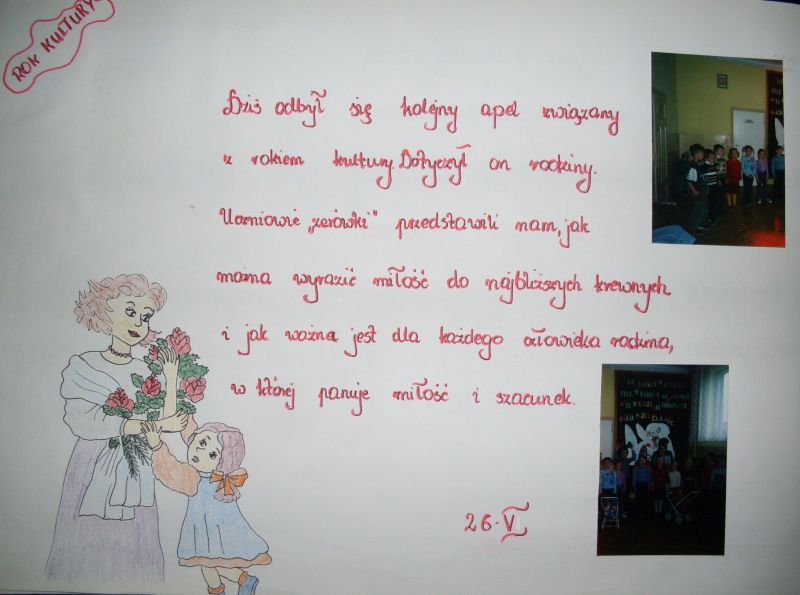 ROK KULTURY
Dziś odbył się kolejny apel związany
z rokiem kultury. Dotyczył on rodziny.
Uczniowie „zerówki" przedstawili nam, jak
można wyrazić miłość do najbliższych krewnych
i jak ważna jest dla każdego człowieka rodzina,
w której panuje miłość i szacunek.
26.V